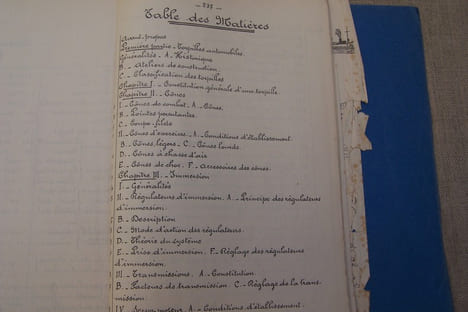 Table des Matières
Avant-propos
Première partie - Torpilles automobiles.
Généralités - A. - Historique
B. - Ateliers de construction.
C. - Classification des torpilles
Chapitre I. - Constitution générale d'une torpille
Chapitre II. - Cônes
I. - Cônes de combat. A. - Cônes.
B. - Pointes percutantes.
C. - Coupe-filets
II. - Cônes d'exercices. A. - Conditions d'établissement.
B. - Cônes légers. C. - Cônes lourds.
D. - Cônes à chasse d'air
E. - Cônes de choc. F. - Accessoires des cônes.
Chapitre III. - Immersion
I. - Généralités
II. - Régulateurs d'immersion. A. - Principe des régulateurs
d'immersion.
B. - Description
C. - Mode d'action des régulateurs.
D. - Théorie du système
E. - Prise d'immersion. F. - Réglage des régulateurs
d'immersion.
III. - Transmissions. A. - Constitution
B. - Facteurs de transmission C. - Réglage de la trans-
mission.
IV. - Servo-moteur. A. - Conditions d'établissement.